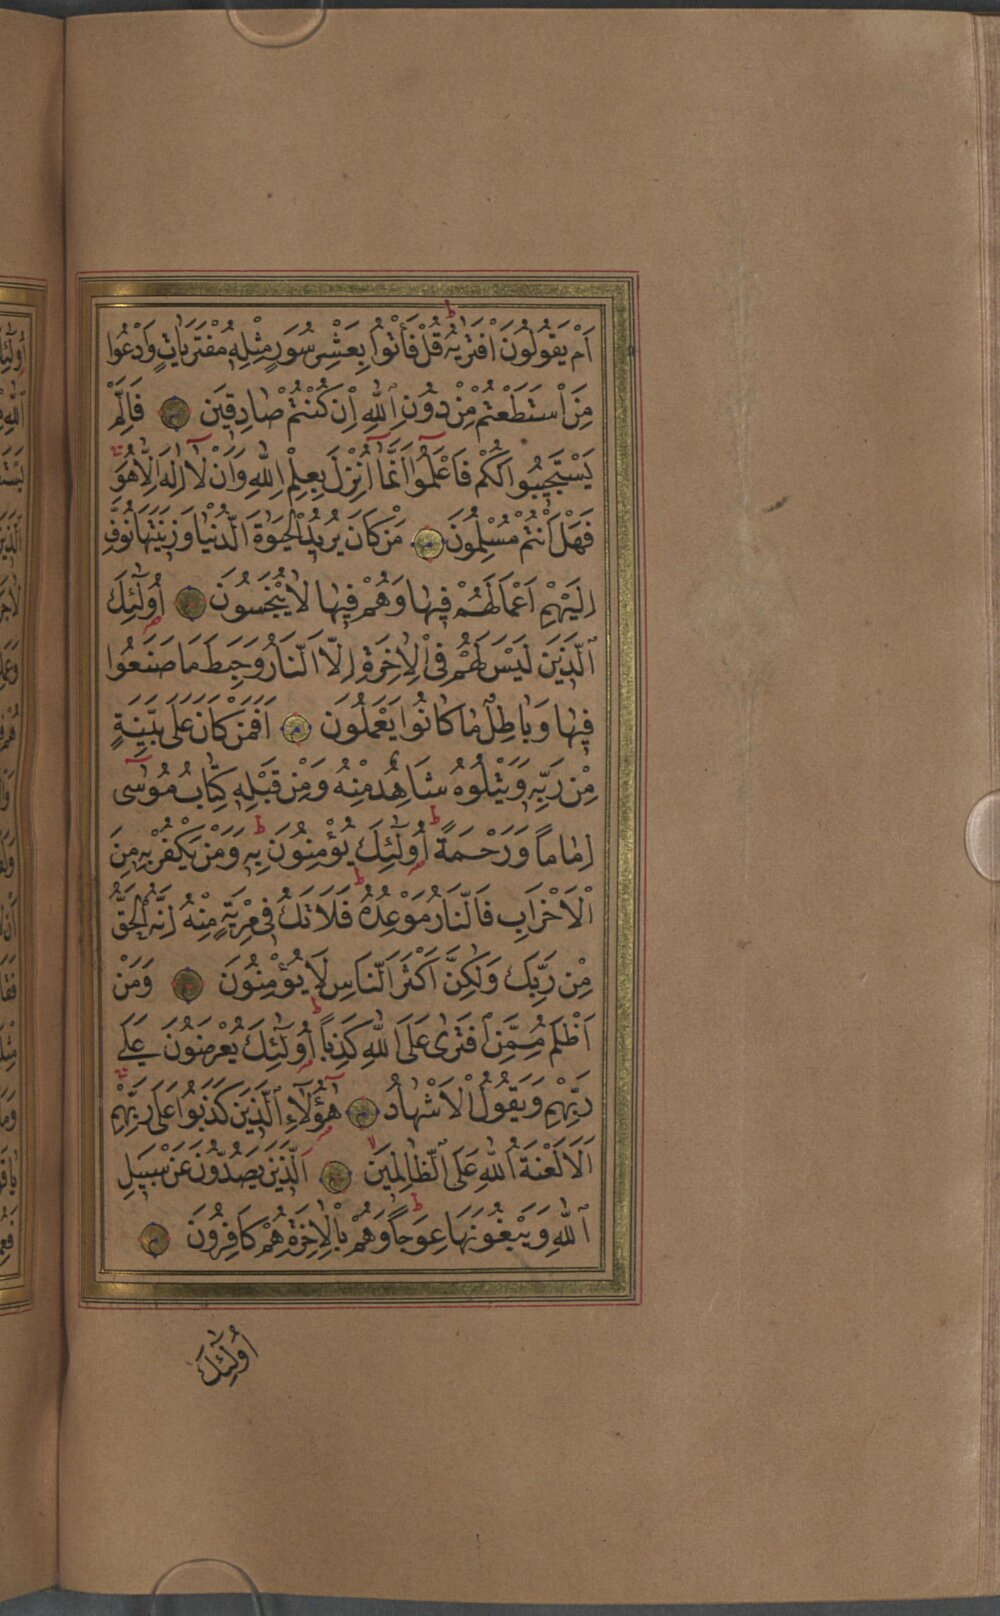 اَمْ يَقُولُونَ افْتَرٰيهُ قُلْ فَأْتُوا بِعَشْرِ سُوَرٍ مِثْلِهِ مُفْتَرَيَاتٍ وَادْعُوا
مَنِ اسْتَطَعْتُمْ مِنْ دُونِ اللّٰهِ اِنْ كُنْتُمْ صَادِقِينَ فَاِلَّمْ
يَسْتَجِيبُوا لَكُمْ فَاعْلَمُوا اَنَّمَا اُنْزِلَ بِعِلْمِ اللّٰهِ وَاَنْ لَا اِلٰهَ اِلَّا هُوَ
فَهَلْ اَنْتُمْ مُسْلِمُونَ مَنْ كَانَ يُرِيدُ الْحَيٰوةَ الدُّنْيَا وَزِينَتَهَا نُوَفِّ
اِلَيْهِمْ اَعْمَالَهُمْ فِيهَا وَهُمْ فِيهَا لَا يُبْخَسُونَ اُولٰٓئِكَ
الَّذِينَ لَيْسَ لَهُمْ فِى الْاٰخِرَةِ اِلَّا النَّارُ وَحَبِطَ مَا صَنَعُوا
فِيهَا وَبَاطِلٌ مَا كَانُوا يَعْمَلُونَ اَفَمَنْ كَانَ عَلٰى بَيِّنَةٍ
مِنْ رَبِّهِ وَيَتْلُوهُ شَاهِدٌ مِنْهُ وَمِنْ قَبْلِهِ كِتَابُ مُوسٰى
اِمَامًا وَرَحْمَةً اُولٰٓئِكَ يُؤْمِنُونَ بِهِ وَمَنْ يَكْفُرْ بِهِ مِنَ
الْاَحْزَابِ فَالنَّارُ مَوْعِدُهُ فَلَا تَكُ فِى مِرْيَةٍ مِنْهُ اِنَّهُ الْحَقُّ
مِنْ رَبِّكَ وَلٰكِنَّ اَكْثَرَ النَّاسِ لَا يُؤْمِنُونَ وَمَنْ
اَظْلَمُ مِمَّنِ افْتَرٰى عَلَى اللّٰهِ كَذِبًا اُولٰٓئِكَ يُعْرَضُونَ عَلٰى
رَبِّهِمْ وَيَقُولُ الْاَشْهَادُ هٰٓؤُلَاءِ الَّذِينَ كَذَبُوا عَلٰى رَبِّهِمْ
اَلَا لَعْنَةُ اللّٰهِ عَلَى الظَّالِمِينَ اَلَّذِينَ يَصُدُّونَ عَنْ سَبِيلِ
اللّٰهِ وَيَبْغُونَهَا عِوَجًا وَهُمْ بِالْاٰخِرَةِ هُمْ كَافِرُونَ
اُولٰٓئِكَ